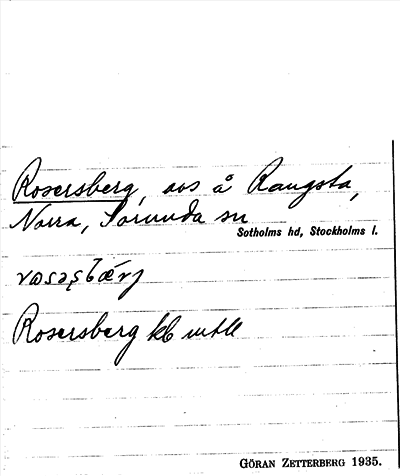 Rosersberg, avs å Rangsta,
Norra, Sorunda sn
Sotholms hd, Stockholms l.
Rosersberg kb mtll
GÖRAN ZETTERBERG 1935.